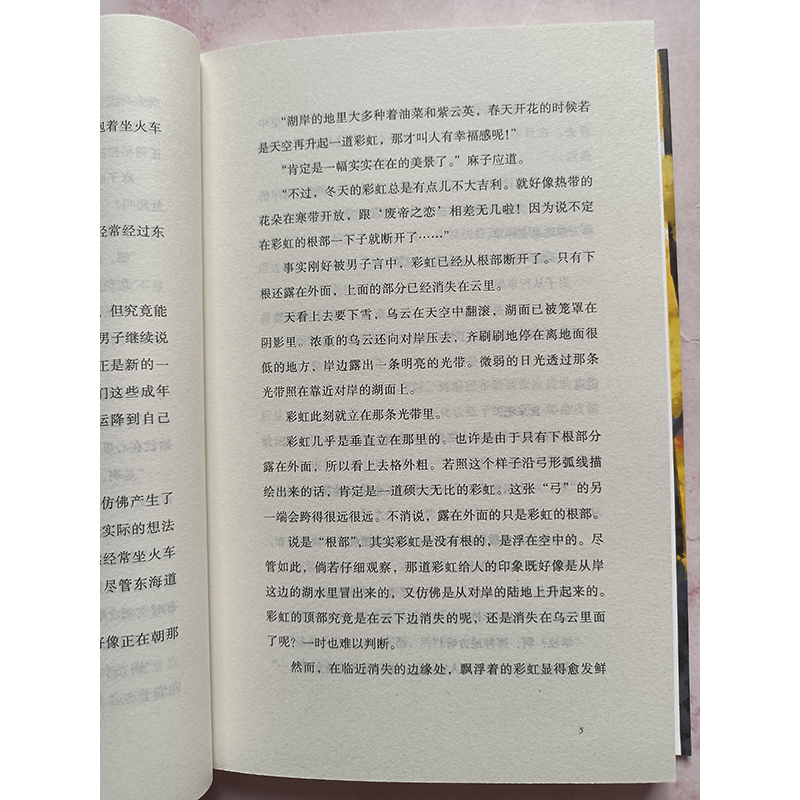 抱着坐火车
经常经过东
，但究竟能
男子继续说
正是新的一
们这些成年
运降到自己
仿佛产生了
实际的想法
经常坐火车
尽管东海道
好像正在朝那
“湖岸的地里大多种着油菜和紫云英，春天开花的时候若
是天空再升起一道彩虹，那才叫人有幸福感呢！”
“肯定是一幅实实在在的美景了。”麻子应道。
“不过，冬天的彩虹总是有点儿不大吉利。就好像热带的
花朵在寒带开放，跟‘废帝之恋’相差无几啦！因为说不定
在彩虹的根部一下子就断开了……”
事实刚好被男子言中，彩虹已经从根部断开了。只有下
根还露在外面，上面的部分已经消失在云里。
天看上去要下雪，乌云在天空中翻滚，湖面已被笼罩在
阴影里。浓重的乌云还向对岸压去，齐刷刷地停在离地面很
低的地方，岸边露出一条明亮的光带。微弱的日光透过那条
光带照在靠近对岸的湖面上。
彩虹此刻就立在那条光带里。
彩虹几乎是垂直立在那里的。也许是由于只有下根部分
露在外面，所以看上去格外粗。若照这个样子沿弓形弧线描
绘出来的话，肯定是一道硕大无比的彩虹。这张“弓”的另
一端会跨得很远很远。不消说，露在外面的只是彩虹的根部。
说是“根部”，其实彩虹是没有根的，是浮在空中的。尽
管如此，倘若仔细观察，那道彩虹给人的印象既好像是从岸
这边的湖水里冒出来的，又仿佛是从对岸的陆地上升起来的。
彩虹的顶部究竟是在云下边消失的呢，还是消失在乌云里面
了呢？一时也难以判断。
然而，在临近消失的边缘处，飘浮着的彩虹显得愈发鲜
5